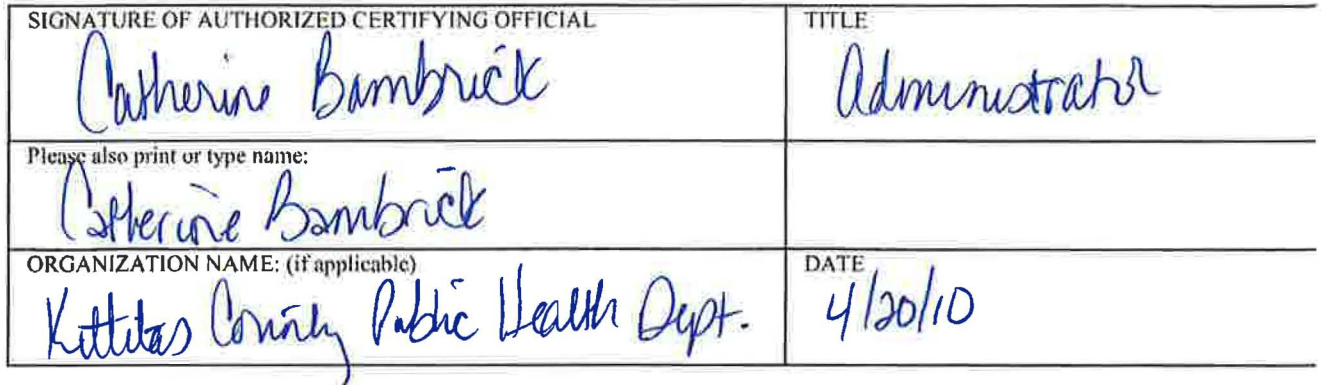 SIGNATURE OF AUTHORIZED CERTIFYING OFFICIAL
TITLE
Catherine Bambrick
Administrator
Please also print or type name:
Catherine Bambrick
ORGANIZATION NAME: (if applicable)
DATE
Kittitas County Public Health Dept.
4/20/10